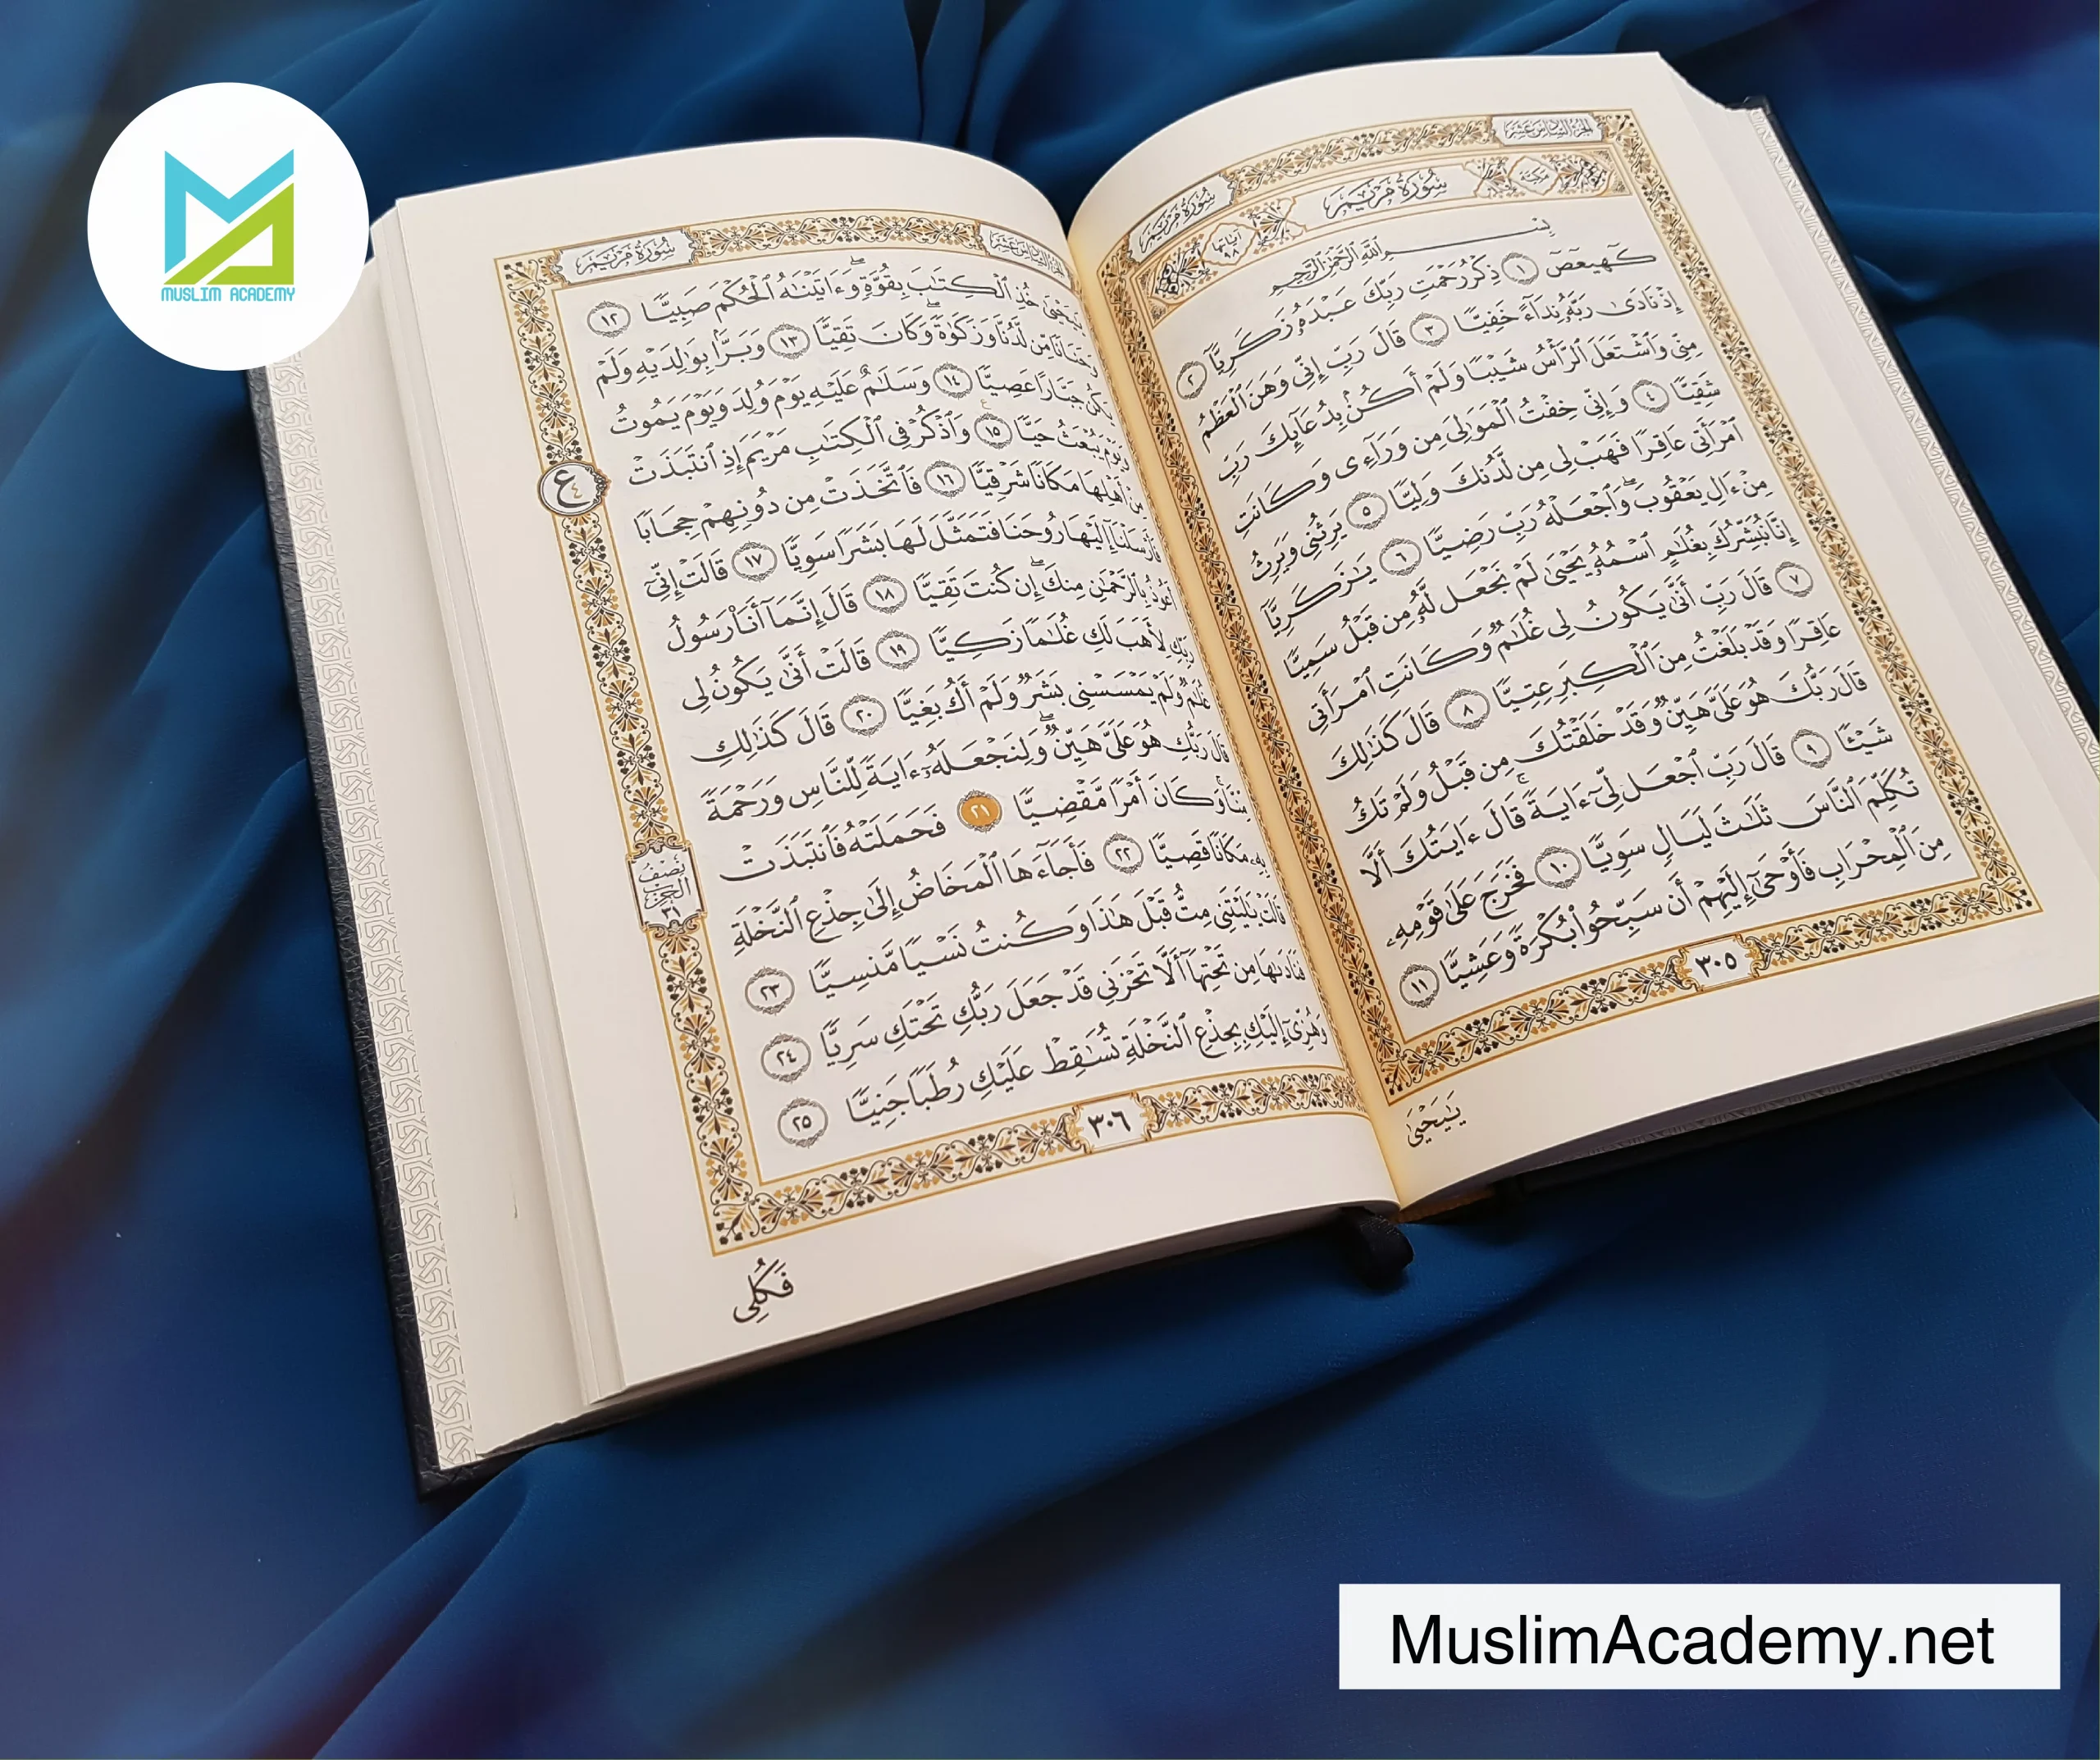 MUSLIM ACADEMY
الجزء السادس عشر
سورة مريم
سورة مريم
مكية
آياتها ٩٨
بِسْمِ ٱللَّهِ ٱلرَّحْمَٰنِ ٱلرَّحِيمِ
كٓهيعٓصٓ ١ ذِكْرُ رَحْمَتِ رَبِّكَ عَبْدَهُۥ زَكَرِيَّآ ٢
إِذْ نَادَىٰ رَبَّهُۥ نِدَآءً خَفِيًّا ٣ قَالَ رَبِّ إِنِّى وَهَنَ ٱلْعَظْمُ
مِنِّى وَٱشْتَعَلَ ٱلرَّأْسُ شَيْبًا وَلَمْ أَكُنۢ بِدُعَآئِكَ رَبِّ
شَقِيًّا ٤ وَإِنِّى خِفْتُ ٱلْمَوَٰلِىَ مِن وَرَآءِى وَكَانَتِ
ٱمْرَأَتِى عَاقِرًا فَهَبْ لِى مِن لَّدُنكَ وَلِيًّا ٥ يَرِثُنِى وَيَرِثُ
مِنْ ءَالِ يَعْقُوبَ ۖ وَٱجْعَلْهُ رَبِّ رَضِيًّا ٦ يَٰزَكَرِيَّآ
إِنَّا نُبَشِّرُكَ بِغُلَٰمٍ ٱسْمُهُۥ يَحْيَىٰ لَمْ نَجْعَل لَّهُۥ مِن قَبْلُ سَمِيًّا
٧ قَالَ رَبِّ أَنَّىٰ يَكُونُ لِى غُلَٰمٌ وَكَانَتِ ٱمْرَأَتِى
عَاقِرًا وَقَدْ بَلَغْتُ مِنَ ٱلْكِبَرِ عِتِيًّا ٨ قَالَ كَذَٰلِكَ
قَالَ رَبُّكَ هُوَ عَلَىَّ هَيِّنٌ وَقَدْ خَلَقْتُكَ مِن قَبْلُ وَلَمْ تَكُ
شَيْـًٔا ٩ قَالَ رَبِّ ٱجْعَل لِّىٓ ءَايَةً ۚ قَالَ ءَايَتُكَ أَلَّا
تُكَلِّمَ ٱلنَّاسَ ثَلَٰثَ لَيَالٍ سَوِيًّا ١٠ فَخَرَجَ عَلَىٰ قَوْمِهِۦ
مِنَ ٱلْمِحْرَابِ فَأَوْحَىٰٓ إِلَيْهِمْ أَن سَبِّحُوا۟ بُكْرَةً وَعَشِيًّا ١١
٣٠٥
يَٰيَحْيَىٰ
الجزء السادس عشر
سورة مريم
يَٰيَحْيَىٰ خُذِ ٱلْكِتَٰبَ بِقُوَّةٍ ۖ وَءَاتَيْنَٰهُ ٱلْحُكْمَ صَبِيًّا ١٢
وَحَنَانًا مِّن لَّدُنَّا وَزَكَوٰةً ۖ وَكَانَ تَقِيًّا ١٣ وَبَرًّۢا بِوَٰلِدَيْهِ وَلَمْ
يَكُن جَبَّارًا عَصِيًّا ١٤ وَسَلَٰمٌ عَلَيْهِ يَوْمَ وُلِدَ وَيَوْمَ يَمُوتُ
وَيَوْمَ يُبْعَثُ حَيًّا ١٥ وَٱذْكُرْ فِى ٱلْكِتَٰبِ مَرْيَمَ إِذِ ٱنتَبَذَتْ
مِنْ أَهْلِهَا مَكَانًا شَرْقِيًّا ١٦ فَٱتَّخَذَتْ مِن دُونِهِمْ حِجَابًا
فَأَرْسَلْنَآ إِلَيْهَا رُوحَنَا فَتَمَثَّلَ لَهَا بَشَرًا سَوِيًّا ١٧ قَالَتْ إِنِّىٓ
أَعُوذُ بِٱلرَّحْمَٰنِ مِنكَ إِن كُنتَ تَقِيًّا ١٨ قَالَ إِنَّمَآ أَنَا۠ رَسُولُ
رَبِّكِ لِأَهَبَ لَكِ غُلَٰمًا زَكِيًّا ١٩ قَالَتْ أَنَّىٰ يَكُونُ لِى
غُلَٰمٌ وَلَمْ يَمْسَسْنِى بَشَرٌ وَلَمْ أَكُ بَغِيًّا ٢٠ قَالَ كَذَٰلِكِ
قَالَ رَبُّكِ هُوَ عَلَىَّ هَيِّنٌ ۖ وَلِنَجْعَلَهُۥٓ ءَايَةً لِّلنَّاسِ وَرَحْمَةً
مِّنَّا ۚ وَكَانَ أَمْرًا مَّقْضِيًّا ٢١ فَحَمَلَتْهُ فَٱنتَبَذَتْ
بِهِۦ مَكَانًا قَصِيًّا ٢٢ فَأَجَآءَهَا ٱلْمَخَاضُ إِلَىٰ جِذْعِ ٱلنَّخْلَةِ
قَالَتْ يَٰلَيْتَنِى مِتُّ قَبْلَ هَٰذَا وَكُنتُ نَسْيًا مَّنسِيًّا ٢٣
فَنَادَىٰهَا مِن تَحْتِهَآ أَلَّا تَحْزَنِى قَدْ جَعَلَ رَبُّكِ تَحْتَكِ سَرِيًّا ٢٤
وَهُزِّىٓ إِلَيْكِ بِجِذْعِ ٱلنَّخْلَةِ تُسَٰقِطْ عَلَيْكِ رُطَبًا جَنِيًّا ٢٥
ع
٤
نصف
الحزب
٣١
٣٠٦
فَكُلِى
MuslimAcademy.net